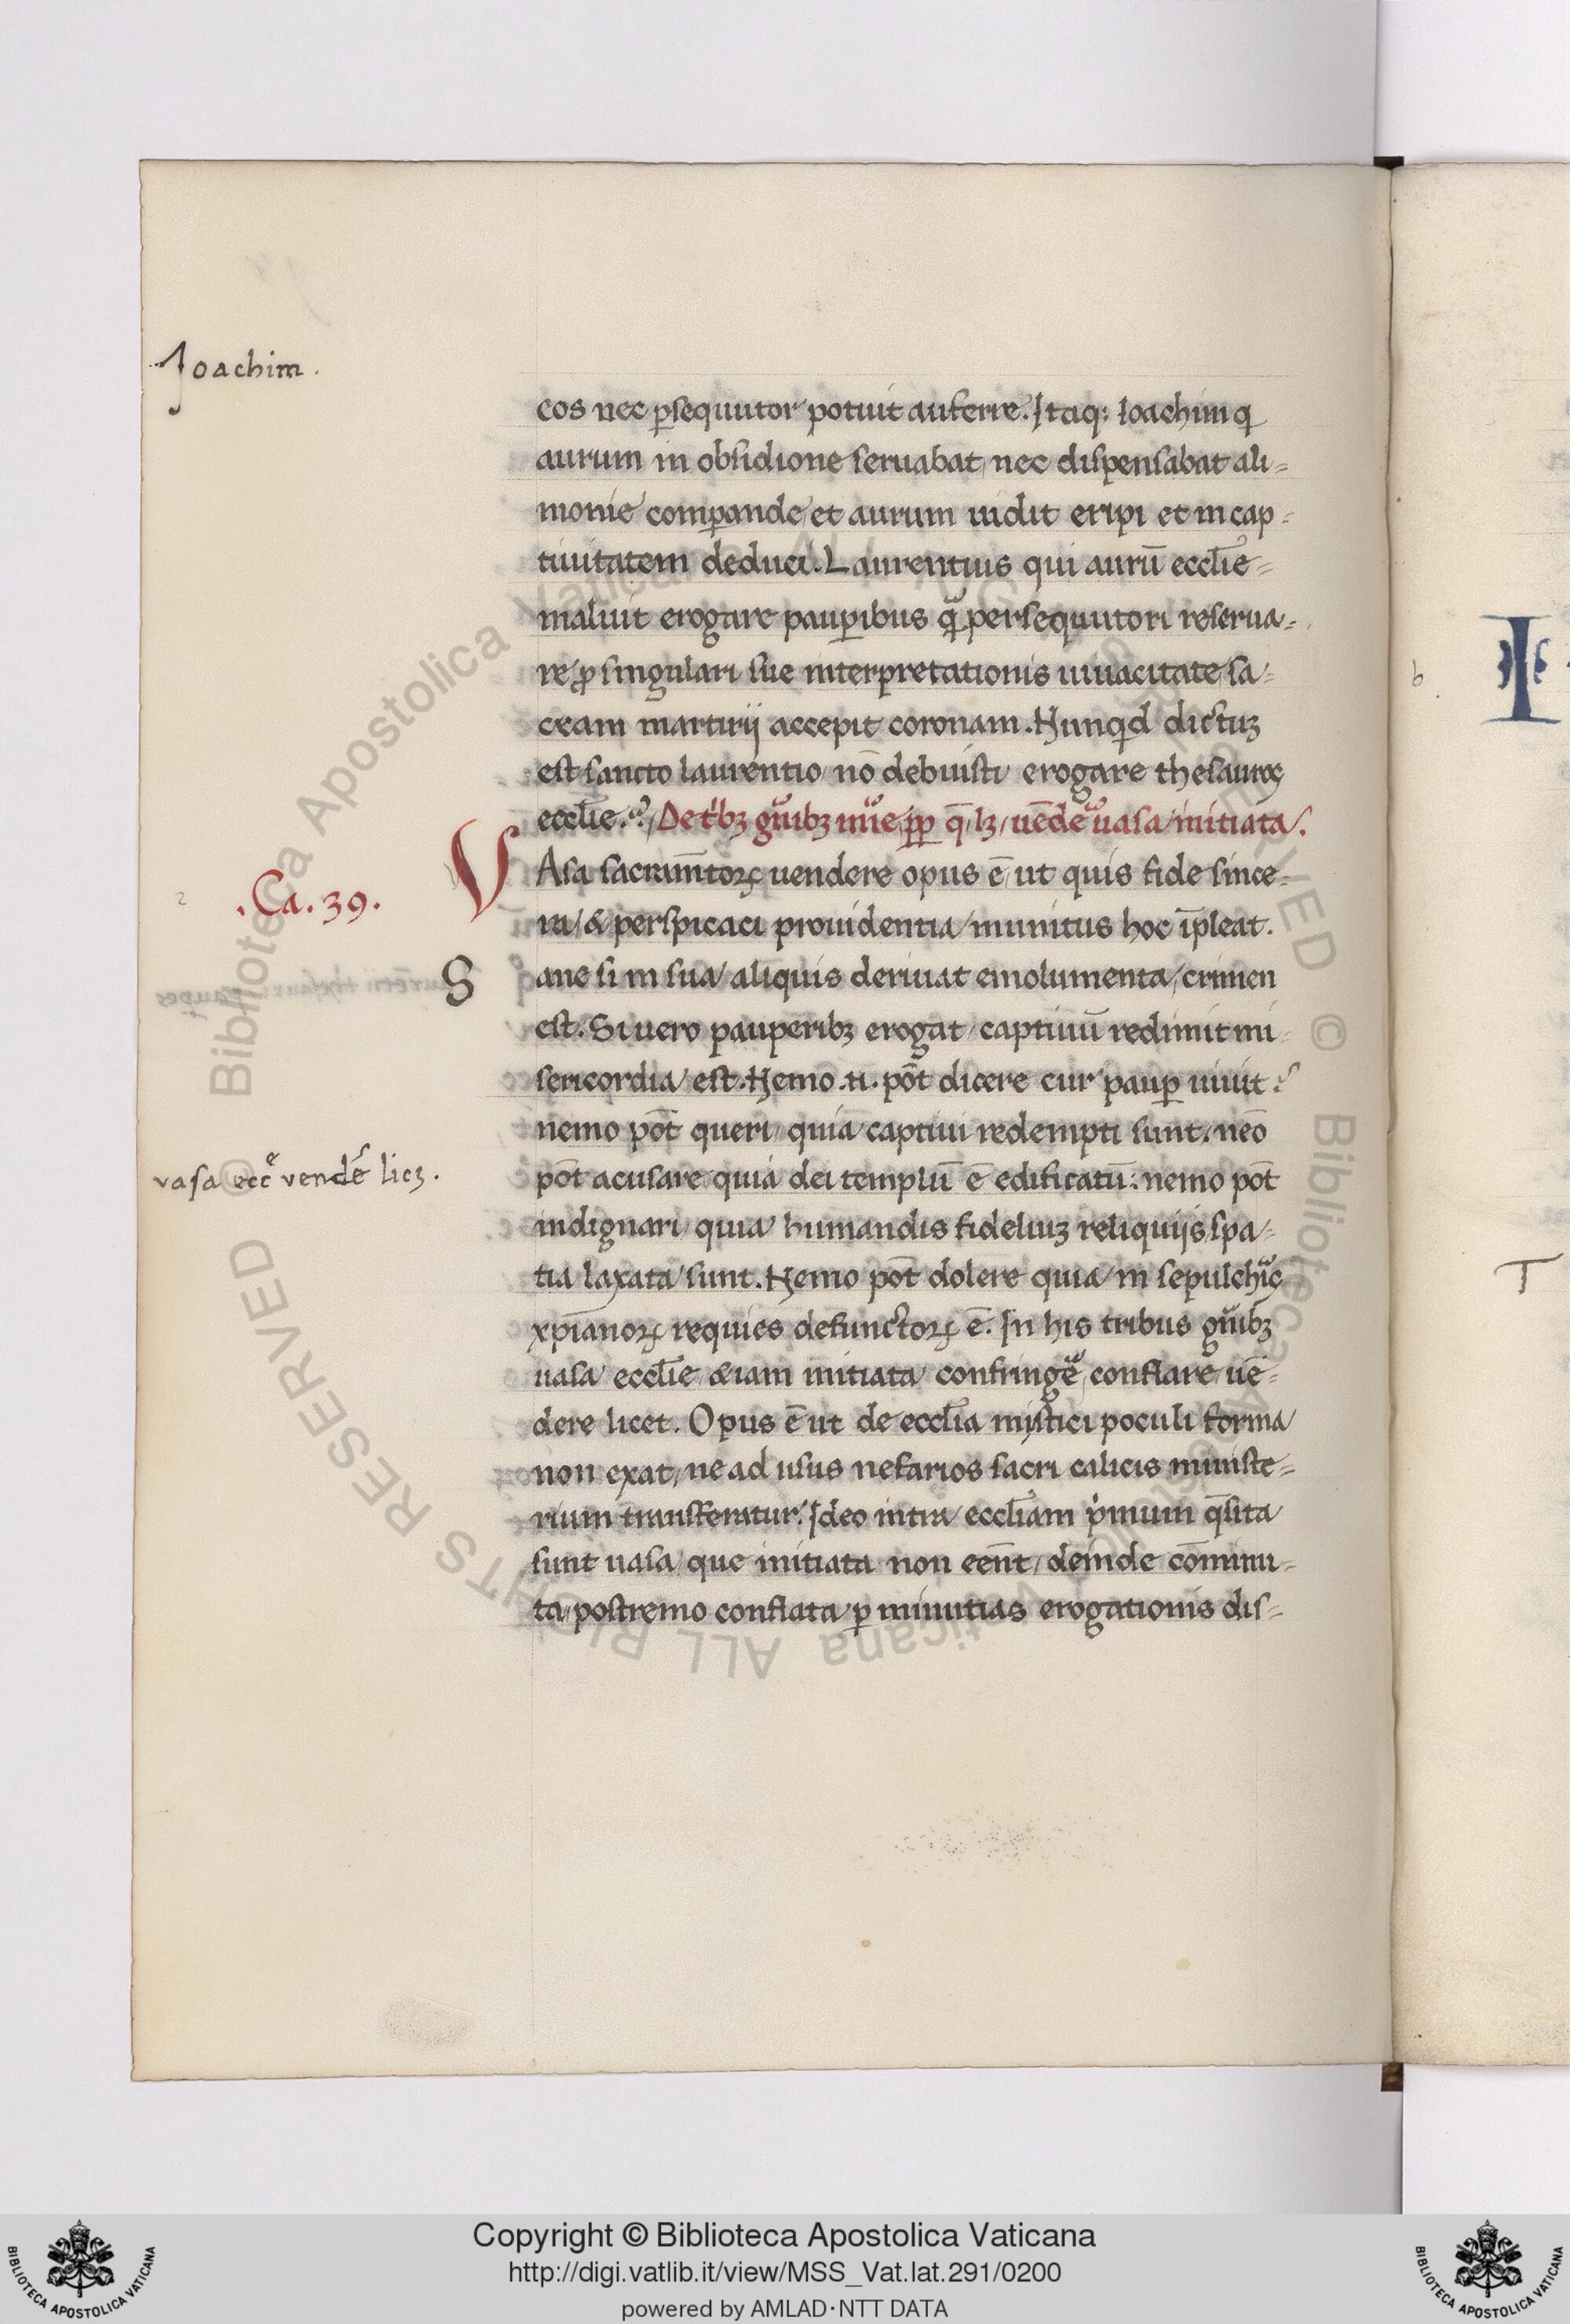 Joachim.
eos nec ꝑsequutor potuit auferre. Itaq: Ioachim q
aurum in obsidione seruabat, nec dispensabat ali=
monie comꝑande et aurum uidit eripi et in cap=
tiuitatem deduci. Laurentius qui aurū eccl̄ie=
maluit erogare pauꝑibus qͣ persequutori reserua=
re ꝓ singulari sue interpretationis uiuacitate sa=
cram martirij accepit coronam. Nunqd dictuꝫ
est sancto laurentio nō debuisti erogare thesauros
eccl̄ie. De tͥbꝫ gn̄ibꝫ ꝓp q̄ lꝫ uēde uasa initiata.
.Ca. 39.
VAsa sacram̄toꝝ uendere opus ē ut quis fide since=
ra & perspicaci prouidentia munitus hoc īpleat.
Sane si in sua aliquis deriuat emolumenta, crimen
est. Si uero pauperibꝫ erogat captiuū redimit mi=
sericordia est. Nemo .n. pōt dicere cur pauꝑ uiuit?
nemo pōt queri quia captiui redempti sunt. neō
vasa ecc̄ vendē licꝫ.
pōt acusare quia dei templū ē edificatū: nemo pōt
indignari quia humandis fideliuꝫ reliquijs spa=
tia laxata sunt. Nemo pōt dolere quia in sepulchͥs
xp̄ianoꝝ requies defunctoꝝ ē. In his tribus gn̄ibꝫ
uasa eccl̄ie &iam initiata confringē, conflare uē=
dere licet. Opus ē ut de eccl̄ia mistici poculi forma
non exat, ne ad usus nefarios sacri calicis ministe=
rium transferatur. Ideo intra eccl̄iam pͥmum q̄sita
sunt uasa que initiata non eēnt, deinde cōminu=
ta, postremo conflata ꝑ minutias erogationis dis=
b
I
T
Copyright © Biblioteca Apostolica Vaticana
http://digi.vatlib.it/view/MSS_Vat.lat.291/0200
powered by AMLAD·NTT DATA
BIBLIOTECA APOSTOLICA VATICANA
BIBLIOTECA APOSTOLICA VATICANA